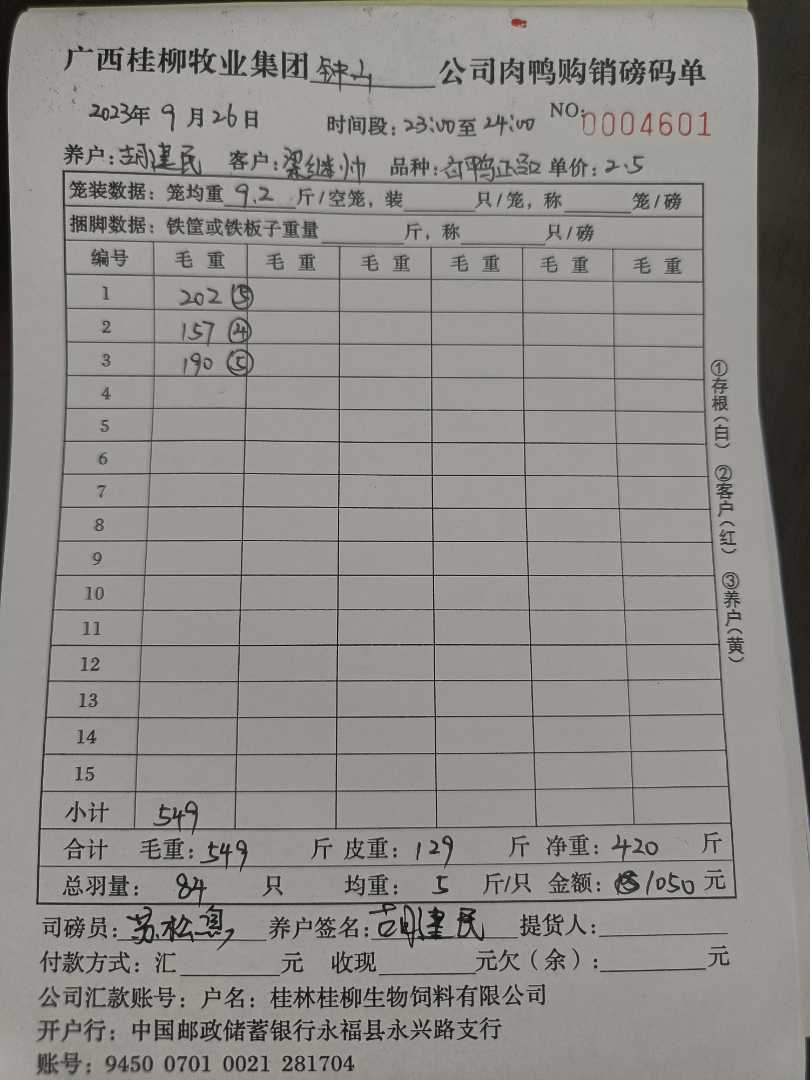 广西桂柳牧业集团钟山公司肉鸭购销磅码单
2023年9月26日 时间段:23:00至24:00 NO:0004601
养户:胡建民 客户:梁继帅 品种:白鸭正品 单价:2.5
笼装数据:笼均重9.2斤/空笼,装 只/笼,称 笼/磅
捆脚数据:铁筐或铁板子重量 斤,称 只/磅
编号 毛重 毛重 毛重 毛重 毛重 毛重
1 202 ⑤
2 157 ④
3 190 ⑤
4
5
6
7
8
9
10
11
12
13
14
15
小计 549
合计 毛重:549 斤 皮重:129 斤 净重:420 斤
总羽量:84 只 均重:5 斤/只 金额:1050元
司磅员:苏松 养户签名:胡建民 提货人:
付款方式:汇 元 收现 元欠(余): 元
公司汇款账号:户名:桂林桂柳生物饲料有限公司
开户行:中国邮政储蓄银行永福县永兴路支行
账号:9450 0701 0021 281704
①存根(白) ②客户(红) ③养户(黄)